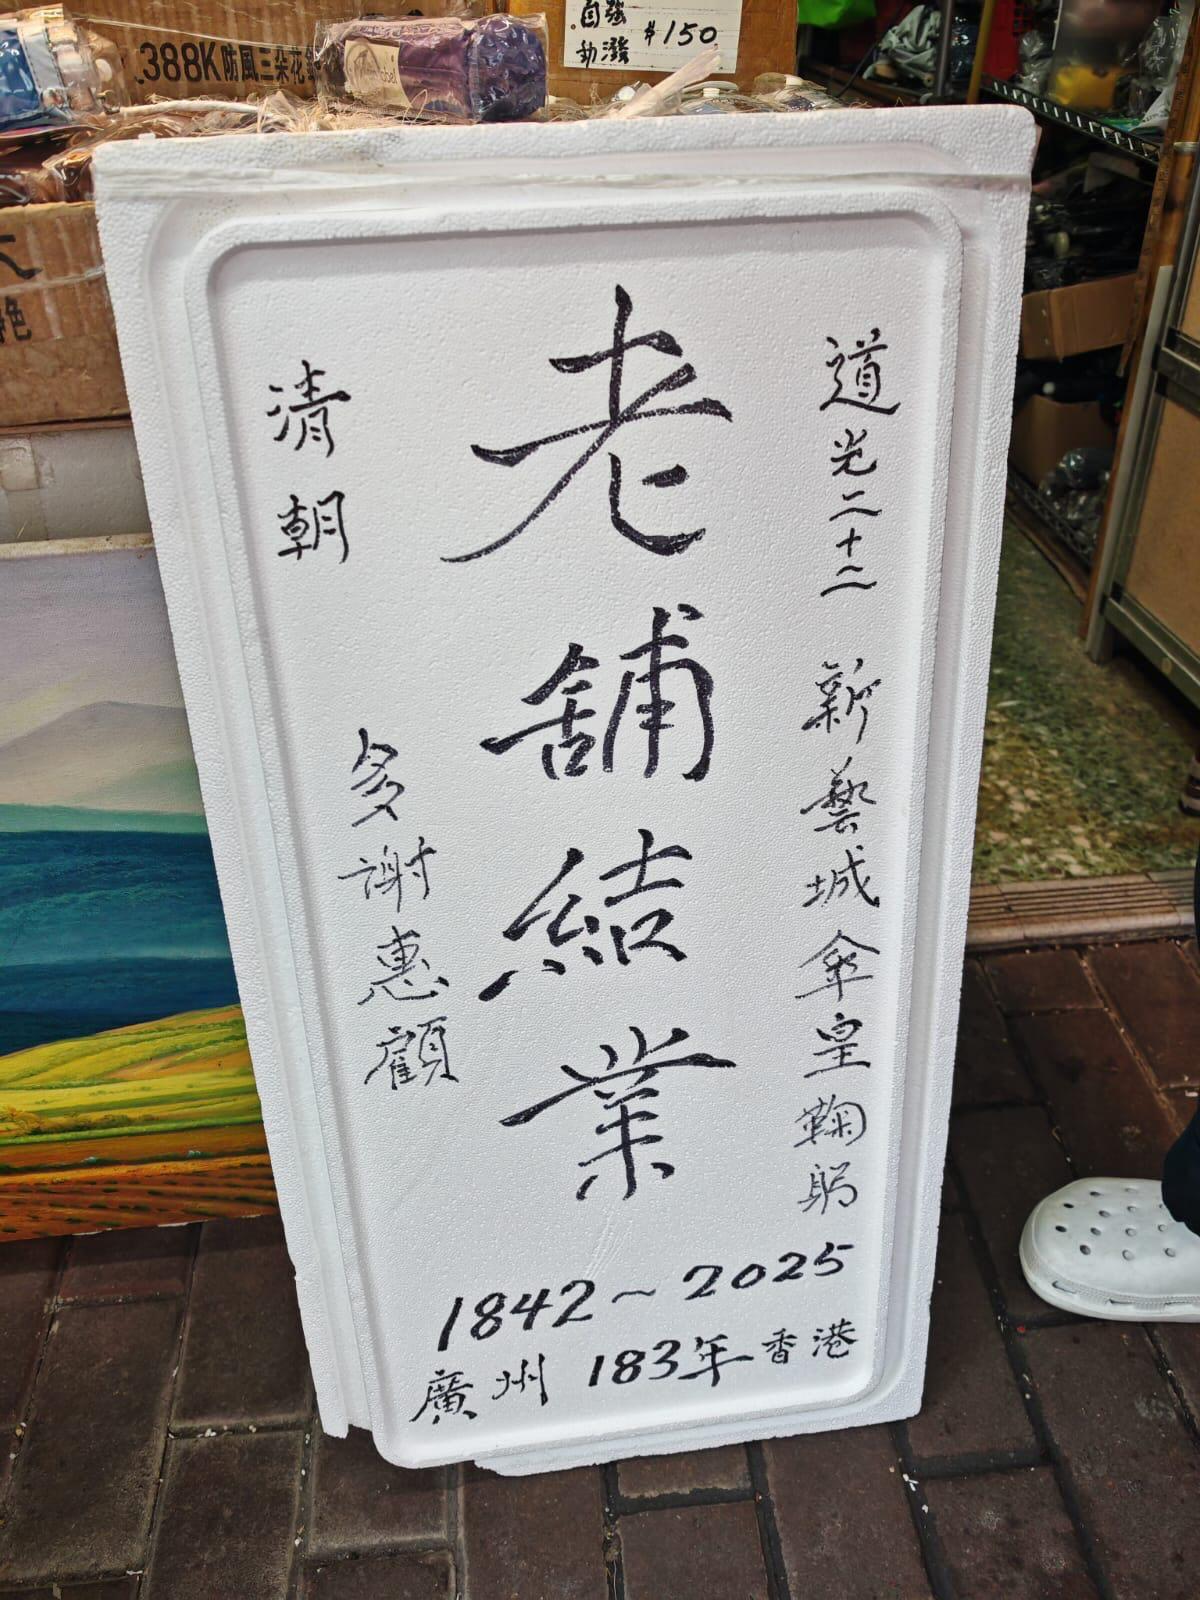 388K防風三朵花
自強 $150
勁潑
色
道光二十二 新藝城傘皇鞠躬
老舖結業
清朝
多謝惠顧
1842~2025
廣州 183年 香港